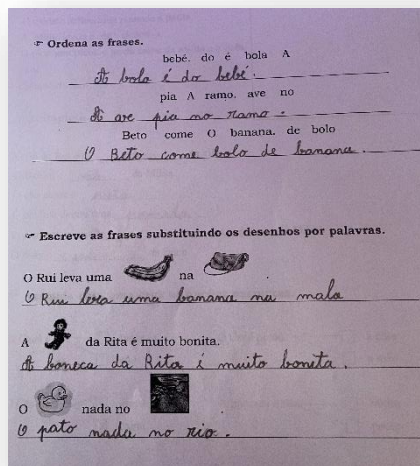 ☞ Ordena as frases.
bebé. do é bola A
A bola é do bebé.
pia A ramo. ave no
A ave pia no ramo.
Beto come O banana. de bolo
O Beto come bolo de banana.
☞ Escreve as frases substituindo os desenhos por palavras.
O Rui leva uma na
O Rui leva uma banana na mala
A da Rita é muito bonita.
A boneca da Rita é muito bonita.
O nada no
O pato nada no rio.